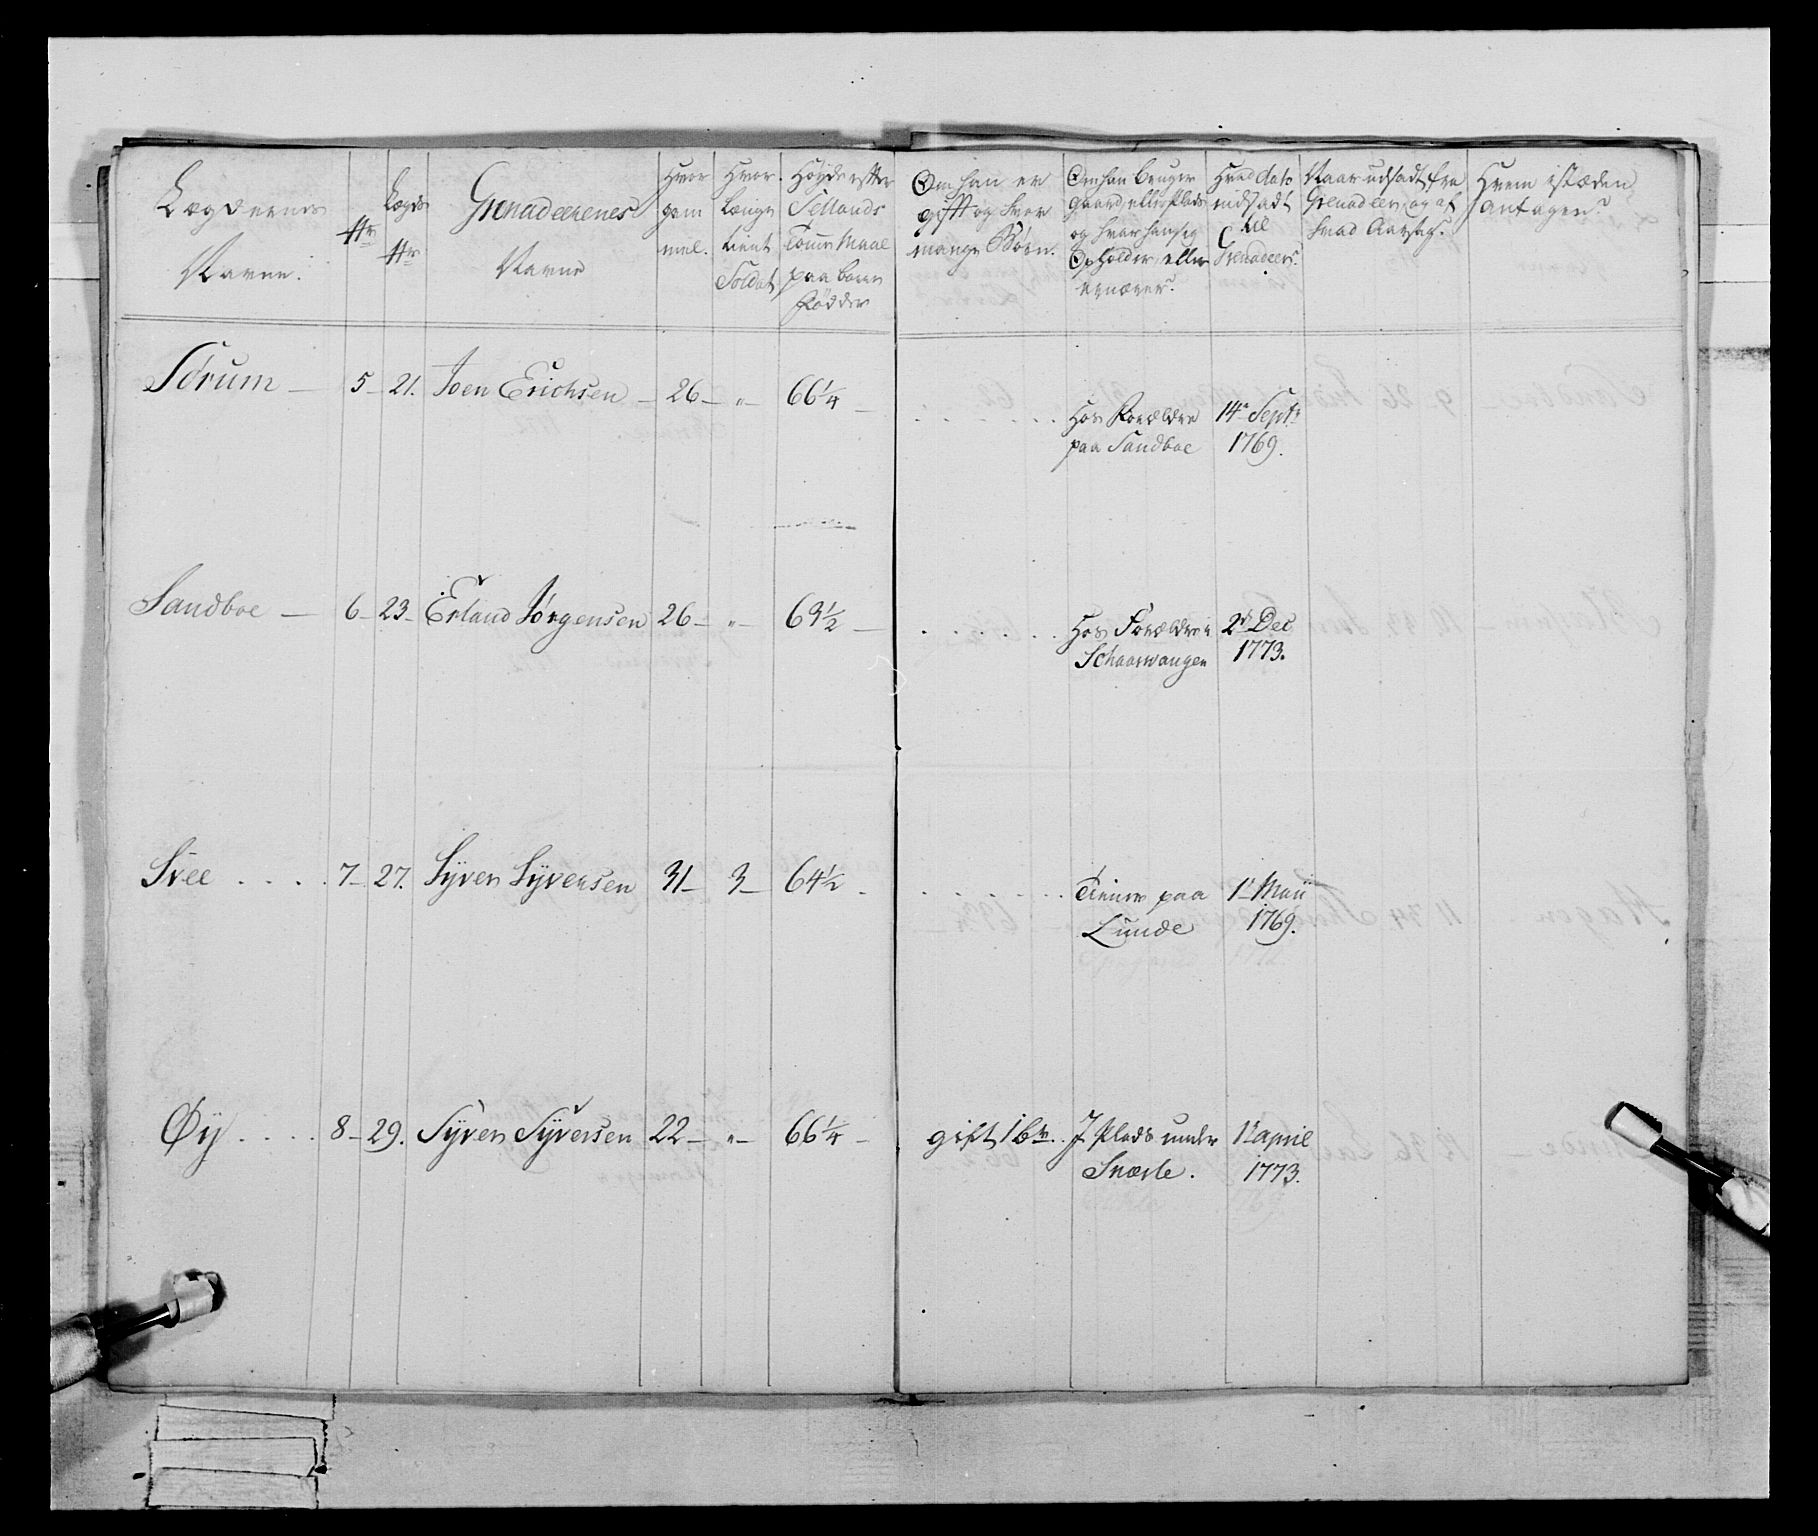 Lægdernes Navne.
No
Lægds No
Grenadeerenes Navne
Hvor gam mel.
Hvor længe tient Soldat
Höyde efter Sellands Tomme Maal paa bare Fødder
Om han er gifft og hvor mange Börn.
Om han bruger gaard eller Plads og hvor han sig Opholder eller ernærer.
Hvad dato indsadt til Grenadeer.
Naar udsadt fra Grenadeer, og af hvad Aarsag.
Hvem i stæden antagen?
Sörum — 5 — 21. Joen Erichsen — 26 — " — 66 1/4 — . . . . . . Hos Forældre 14de Septr
paa Sandboe 1769.
Sandboe — 6 — 23 — Erland Jörgensen 26 — " — 63 1/2 — . . . . . . Hos Forældre i 2d Dec
Schaarvangen 1773.
Svee . . . . 7 — 27. Syver Syversen 31 — 3 — 64 1/2 — . . . . . . Tiener paa 1t Maii
Lunde 1769.
Øy . . . . 8 — 29. Syver Syversen 22 — " — 66 1/4 — gift 1 br. . J Plads under 1t april
Snærle. 1773.